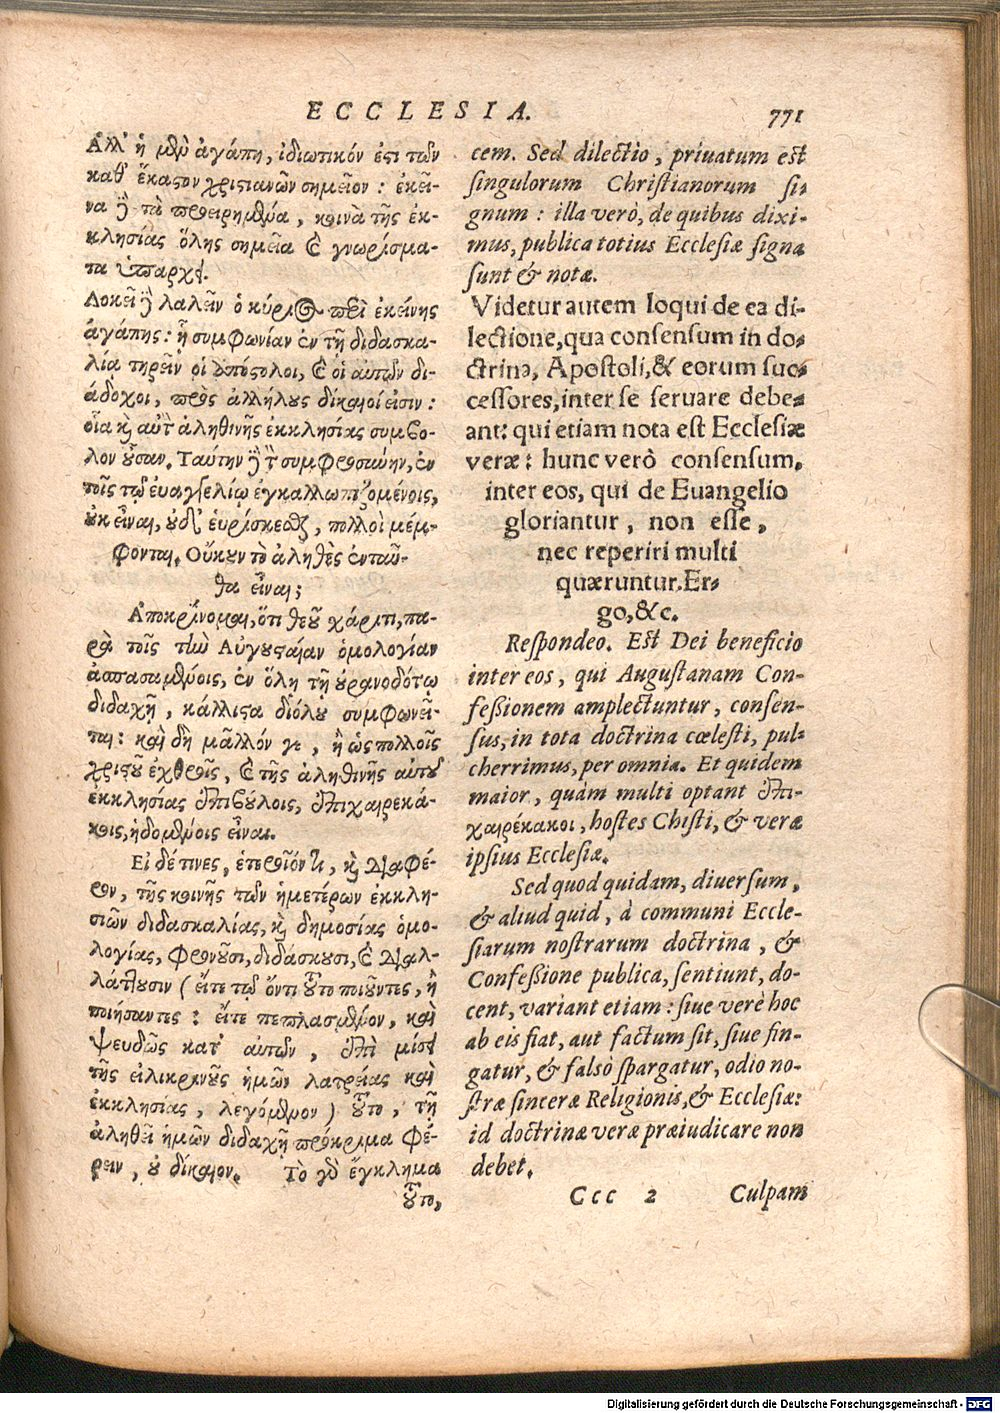 ECCLESIA. 771
Ἀλλ' ἡ μὲν ἀγάπη, ἰδιωτικόν ἐστι τῶν
καθ' ἕκαστον χριστιανῶν σημεῖον : ἐκεῖ-
να δὲ τὰ προειρημένα, κοινὰ τῆς ἐκ-
κλησίας ὅλης σημεῖα καὶ γνωρίσμα-
τα ὑπαρχει.
Δοκεῖ δὲ λαλεῖν ὁ κύριος περὶ ἐκείνης
ἀγάπης : ᾗ συμφωνίαν ἐν τῇ διδασκα-
λίᾳ τηρεῖν οἱ ἀπόστολοι, καὶ οἱ αὐτῶν δι-
άδοχοι, πρὸς ἀλλήλους δίκαιοί εἰσιν :
οἷα καὶ αὐτὴ ἀληθινῆς ἐκκλησίας συμβο-
λον οὖσαν. Ταύτην δὲ τὴν συμφροσύνην, ἐν
τοῖς τῷ ἐυαγγελίῳ ἐγκαλλωπιζομένοις,
οὐκ εἶναι, οὐδ' ἑυρίσκεσθαι, πολλοὶ μέμ-
φονται. Οὔκουν τὸ ἀληθὲς ἐνταῦ-
θα εἶναι;
Ἀποκρίνομαι, ὅτι θεοῦ χάριτι, πα-
ρὰ τοῖς τὴν Αὐγουσταίαν ὁμολογίαν
ἀσπασαμένοις, ἐν ὅλῃ τῇ οὐρανοδότῳ
διδαχῇ, κάλλιστα διόλου συμφωνεῖ-
ται : καὶ δὴ μᾶλλόν γε, ἢ ὡς πολλοῖς
χριστοῦ ἐχθροῖς, καὶ τῆς ἀληθινῆς αὐτοῦ
ἐκκλησίας ἐπιβούλοις, ἐπιχαιρεκά-
κοις, ἡδομένοις εἶναι.
Εἰ δέ τινες, ἑτεροῖόν τι, καὶ διαφέ-
ρον, τῆς κοινῆς τῶν ἡμετέρων ἐκκλη-
σιῶν διδασκαλίας, καὶ δημοσίας ὁμο-
λογίας, φρονοῦσι, διδάσκουσι, καὶ διαλ-
λάττουσιν (εἴτε τῷ ὄντι τοῦτο ποιοῦντες, ἢ
ποιήσαντες : εἴτε πεπλασμένον, καὶ
ψευδῶς κατ' αὐτῶν, ἐπὶ μίσει
τῆς εἰλικρινοῦς ἡμῶν λατρείας καὶ
ἐκκλησίας, λεγόμενον) τοῦτο, τῇ
ἀληθεῖ ἡμῶν διδαχῇ πρόκριμα φέ-
ρειν, οὐ δίκαιον. Τὸ γὰρ ἔγκλημα
τοῦτο,
cem. Sed dilectio, priuatum est
singulorum Christianorum si-
gnum : illa verò, de quibus dixi-
mus, publica totius Ecclesiæ signa
sunt & notæ.
Videtur autem loqui de ea di-
lectione, qua consensum in do-
ctrina, Apostoli, & eorum suc-
cessores, inter se seruare debe-
ant: qui etiam nota est Ecclesiæ
veræ : hunc verò consensum,
inter eos, qui de Euangelio
gloriantur, non esse,
nec reperiri multi
quæruntur. Er-
go, &c.
Respondeo. Est Dei beneficio
inter eos, qui Augustanam Con-
fessionem amplectuntur, consen-
sus, in tota doctrina cœlesti, pul-
cherrimus, per omnia. Et quidem
maior, quàm multi optant ἐπι-
χαιρέκακοι, hostes Chisti, & veræ
ipsius Ecclesiæ.
Sed quod quidam, diuersum,
& aliud quid, à communi Eccle-
siarum nostrarum doctrina, &
Confessione publica, sentiunt, do-
cent, variant etiam : siue verè hoc
ab eis fiat, aut factum sit, siue fin-
gatur, & falsò spargatur, odio no-
stræ sinceræ Religionis, & Ecclesiæ:
id doctrinæ veræ præiudicare non
debet.
Ccc 2 Culpam
Digitalisierung gefördert durch die Deutsche Forschungsgemeinschaft - DFG